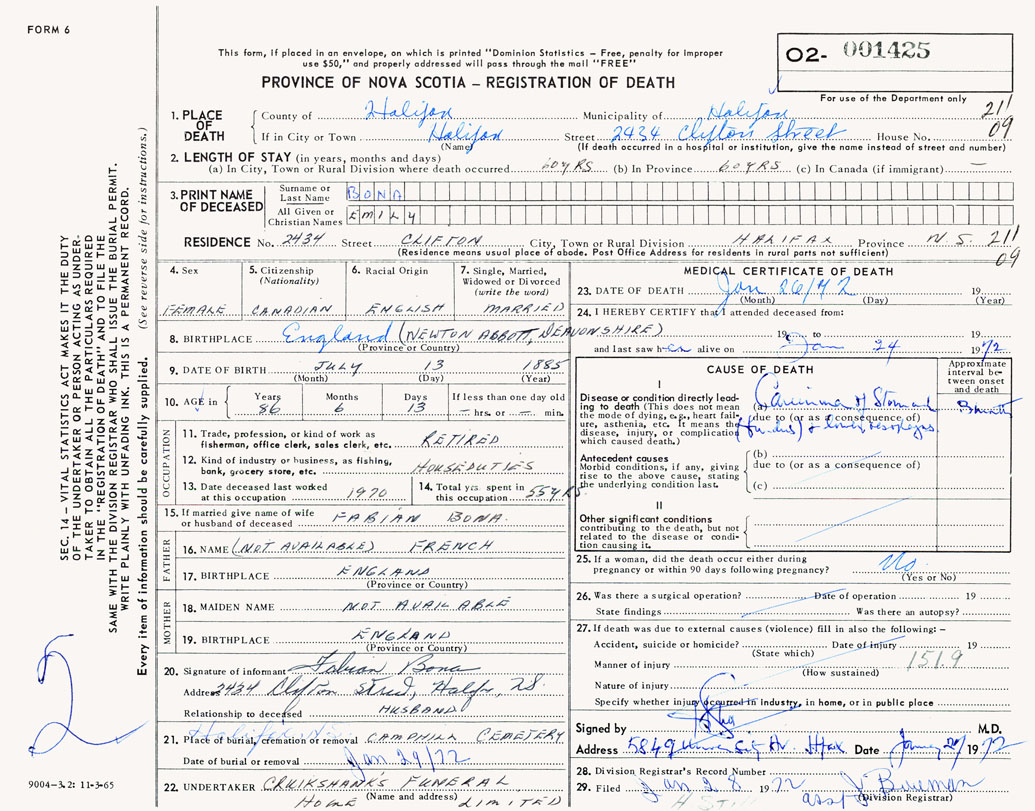 FORM 6
This form, if placed in an envelope, on which is printed "Dominion Statistics – Free, penalty for improper
use $50," and properly addressed will pass through the mail "FREE"
PROVINCE OF NOVA SCOTIA – REGISTRATION OF DEATH
02- 001425
For use of the Department only
211
09
1. PLACE OF DEATH
County of Halifax Municipality of Halifax
If in City or Town Halifax Street 2434 Clifton Street House No.
(Name) (If death occurred in a hospital or institution, give the name instead of street and number)
2. LENGTH OF STAY (in years, months and days)
(a) In City, Town or Rural Division where death occurred 60 YRS (b) In Province 60 YRS (c) In Canada (if immigrant) —
3. PRINT NAME OF DECEASED
Surname or Last Name BONA
All Given or Christian Names EMILY
RESIDENCE No. 2434 Street CLIFTON City, Town or Rural Division HALIFAX Province N.S. 211
(Residence means usual place of abode. Post Office Address for residents in rural parts not sufficient) 09
4. Sex
FEMALE
5. Citizenship
(Nationality)
CANADIAN
6. Racial Origin
ENGLISH
7. Single, Married,
Widowed or Divorced
(write the word)
MARRIED
8. BIRTHPLACE England (NEWTON ABBOTT, DEVONSHIRE)
(Province or Country)
9. DATE OF BIRTH JULY 13 1885
(Month) (Day) (Year)
10. AGE in
Years Months Days If less than one day old
86 6 13 — hrs. or — min.
OCCUPATION
11. Trade, profession, or kind of work as
fisherman, office clerk, sales clerk, etc. RETIRED
12. Kind of industry or business, as fishing,
bank, grocery store, etc. HOUSEDUTIES
13. Date deceased last worked
at this occupation 1970
14. Total yrs. spent in
this occupation 55 YRS
15. If married give name of wife
or husband of deceased FABIAN BONA.
FATHER
16. NAME (NOT AVAILABLE) FRENCH
17. BIRTHPLACE ENGLAND
(Province or Country)
MOTHER
18. MAIDEN NAME NOT AVAILABLE
19. BIRTHPLACE ENGLAND
(Province or Country)
20. Signature of informant Fabian Bona
Address 2434 Clifton Street, Halifx, N.S.
Relationship to deceased HUSBAND
Halifax N.S.
21. Place of burial, cremation or removal CAMPHILL CEMETERY
Date of burial or removal Jan. 29/72
22. UNDERTAKER CRUIKSHANK'S FUNERAL
(Name and address)
HOME LIMITED
MEDICAL CERTIFICATE OF DEATH
23. DATE OF DEATH Jan 26/72 19
(Month) (Day) (Year)
24. I HEREBY CERTIFY that I attended deceased from:
19 to
and last saw her alive on Jan 24 1972
CAUSE OF DEATH
Approximate
interval be-
tween onset
and death
I
Disease or condition directly lead-
ing to death (This does not mean
the mode of dying, e.g., heart fail-
ure, asthenia, etc. It means the
disease, injury, or complication
which caused death.)
(a) Carcinoma of Stomach
due to (or as a consequence of)
(fundus) & lower esophagus
Antecedent causes
Morbid conditions, if any, giving
rise to the above cause, stating
the underlying condition last.
(b)
due to (or as a consequence of)
(c)
II
Other significant conditions
contributing to the death, but not
related to the disease or condi-
tion causing it.
25. If a woman, did the death occur either during
pregnancy or within 90 days following pregnancy? No
(Yes or No)
26. Was there a surgical operation? Date of operation 19
State findings Was there an autopsy?
27. If death was due to external causes (violence) fill in also the following: –
Accident, suicide or homicide? Date of injury 19
(State which)
Manner of injury 151.9
(How sustained)
Nature of injury
Specify whether injury occurred in industry, in home, or in public place
Signed by M.D.
Address 5849 Date January 1972
28. Division Registrar's Record Number
29. Filed Jan 28 1972
(Division Registrar)
SEC. 14 – VITAL STATISTICS ACT MAKES IT THE DUTY
OF THE UNDERTAKER OR PERSON ACTING AS UNDER-
TAKER TO OBTAIN ALL THE PARTICULARS REQUIRED
IN THE "REGISTRATION OF DEATH" AND TO FILE THE
SAME WITH THE DIVISION REGISTRAR WHO SHALL ISSUE THE BURIAL PERMIT.
WRITE PLAINLY WITH UNFADING INK. THIS IS A PERMANENT RECORD.
Every item of information should be carefully supplied. (See reverse side for instructions.)
9004–3.2: 11-3-65